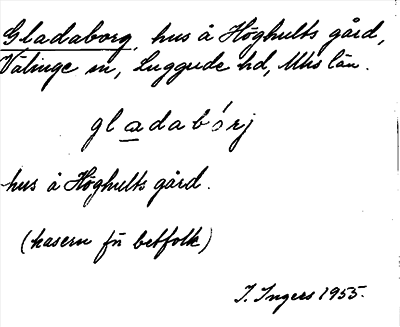 Gladaborg, hus å Höghults gård,
Välinge sn, Luggude hd, Mhs län.
gladabórj
hus å Höghults gård.
(kasern för betfolk)
I. Ingers 1955.